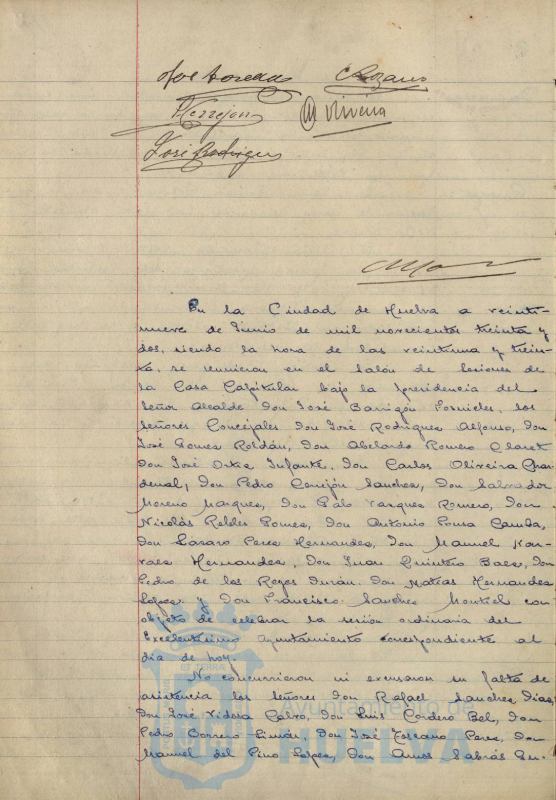 José
Oliveira
José Rodriguez
En la Ciudad de Huelva a veinti-
nueve de Junio de mil novecientos treinta y
dos, siendo la hora de las veintiuna y trein-
ta, se reunieron en el Salón de Sesiones de
la Casa Capitular bajo la presidencia del
Señor Alcalde Don José Barrigón Fornieles, los
señores Concejales Don José Rodriguez Alfonso, Don
José Gomez Roldán, Don Abelardo Romero Claret
Don José Ortiz Infante, Don Carlos Oliveira Chardenal, Don Pedro Cerrejón Sanchez, Don Salvador
Moreno Marquez, Don Pablo Vazquez Romero, Don
Nicolás Robles Gomez, Don Antonio Pousa Camba,
Don Lazaro Perez Hernandez, Don Manuel Nar-
vaez Hernandez, Don Juan Quintero Baez, Don
Pedro de los Reyes Durán, Don Matías Hernandez
Lopez y Don Francisco Sanchez Montiel con
objeto de celebrar la sesión ordinaria del
Excelentísimo Ayuntamiento correspondiente al
día de hoy.
No concurrieron ni excusaron su falta de
asistencia los señores Don Rafael Sanchez Diaz,
Don José Vidosa Calvo, Don Luis Cordero Bel, Don
Pedro Borrero Limón, Don José Toscano Perez, Don
Manuel del Pino Lopez, Don Amos Sabrás Gu-
Ayuntamiento de
HUELVA